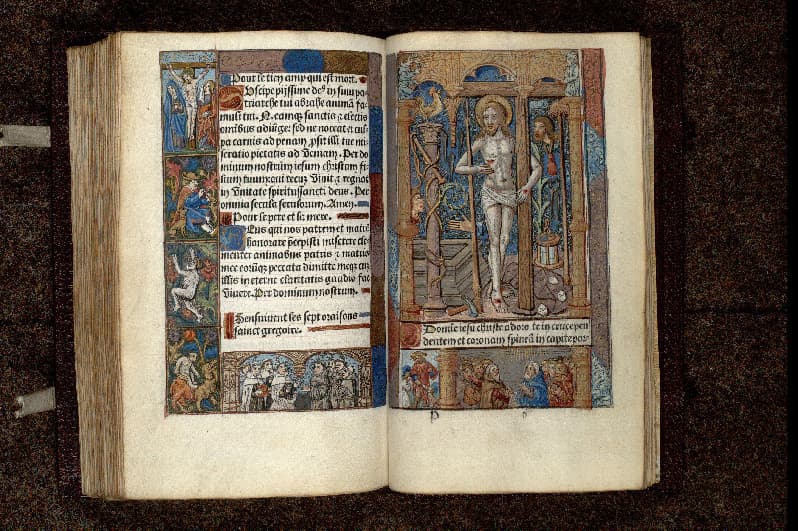 Pour le tien amy qui est mort.
Uscipe pijssime de⁹ in sinu pa
triarche tui abrahe animā fa
muli tui. N. eamq; sanctis & electis
omnibus adiūge: sed ne noceat ei cul
pa carnis ad penam p̄sit illi tue mi
seratio pietatis ad veniam. Per do
minum nostrum iesum christum fi
lium tuum: qui tecū Viuit & regnat
in Vnitate spiritussancti deus. Per
omnia secula seculorum. Amen.
Pour le pere et la mere.
Eus qui nos patrem et matrē
honorare p̄cepisti: miserere cle
menter animabus patris & matris
mee eorūq; peccata dimitte meq; cū
illis in eterne claritatis gaudio fac
Viuere. Per dominum nostrum.
Sensuiuent les sept oraisons
sainct gregoire.
Domīe iesu christe adoro te in cruce pen
dentem et coronam spineā in capite por